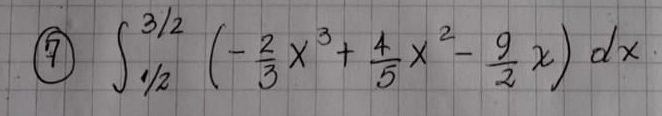 ⑦ ∫_{1/2}^{3/2} (-\frac{2}{3}x^3 + \frac{4}{5}x^2 - \frac{9}{2}x) dx.